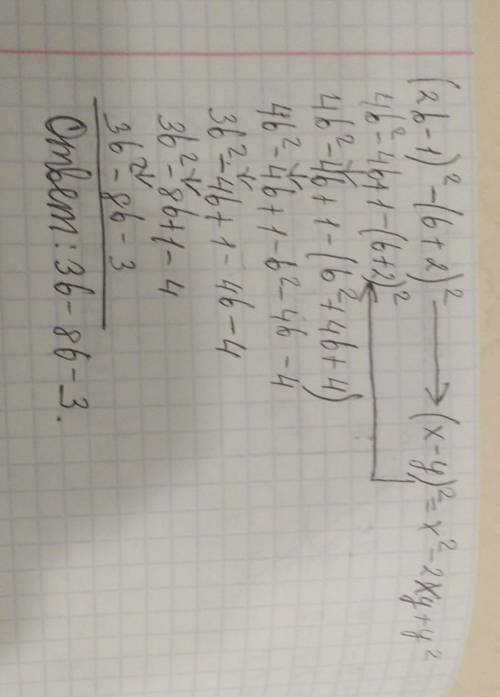 (2b-1)² - (b+2)² → (x-y)² = x² - 2xy + y²
4b² - 4b + 1 - (b+2)²
4b² - 4b + 1 - (b² + 4b + 4)
4b² - 4b + 1 - b² - 4b - 4
3b² - 4b + 1 - 4b - 4
3b² - 8b + 1 - 4
3b² - 8b - 3
Ответ: 3b - 8b - 3.